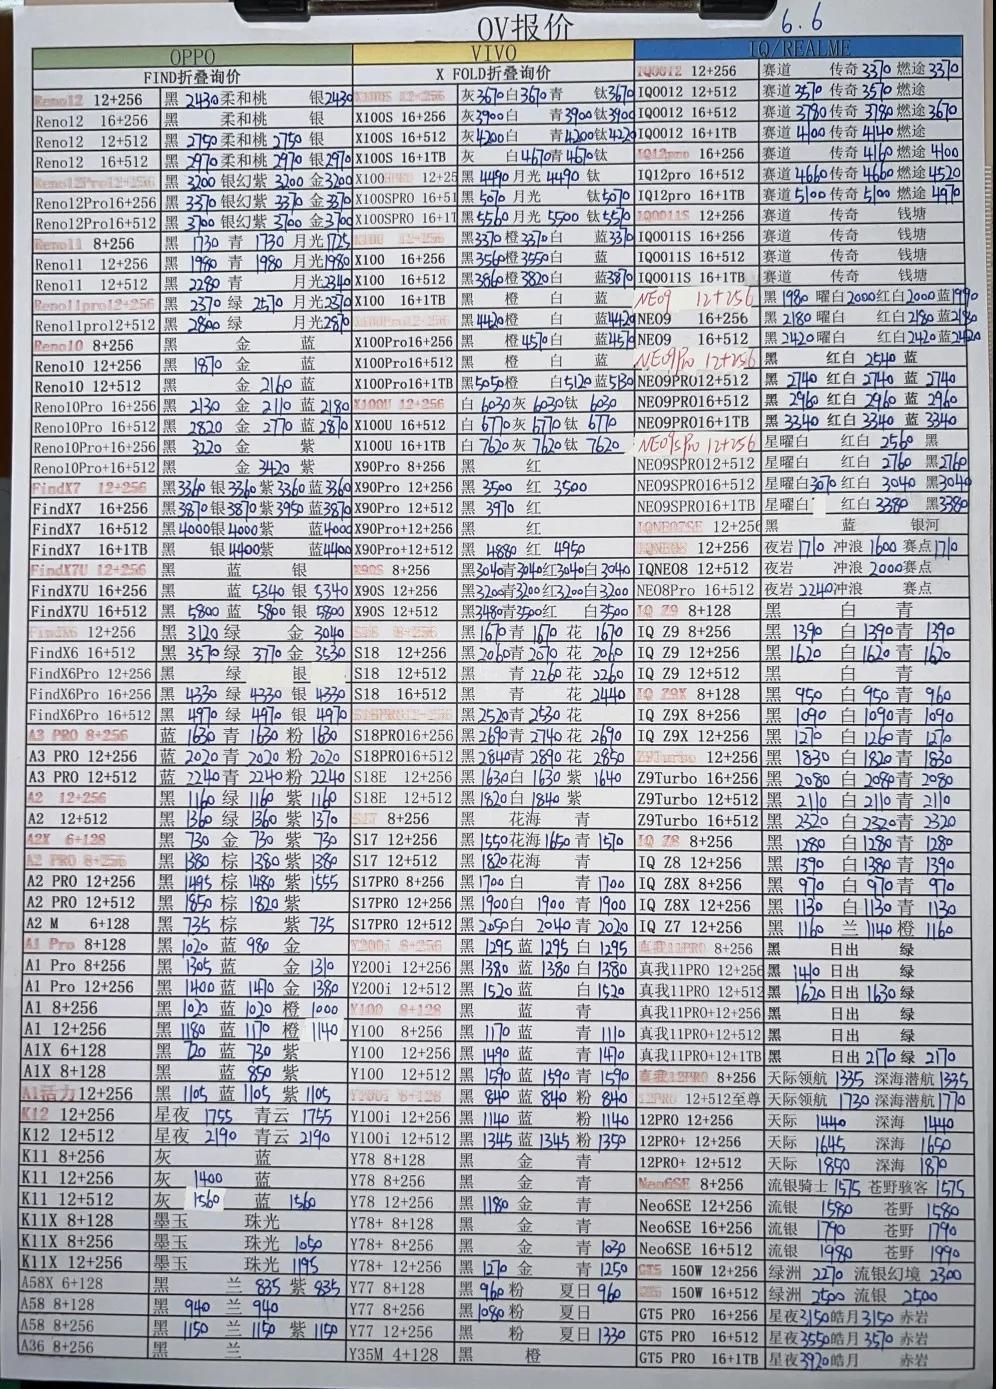 6.6
OV报价
OPPO
FIND折叠询价
Reno12 12+256 黑 2430 柔和桃 银 2430
Reno12 16+256 黑 柔和桃 银
Reno12 12+512 黑 2750 柔和桃 2750 银
Reno12 16+512 黑 2970 柔和桃 2970 银 2970
Reno12Pro12+256 黑 3200 银幻紫 3200 金 3200
Reno12Pro16+256 黑 3370 银幻紫 3370 金 3370
Reno12Pro12+512 黑 3700 银幻紫 3700 金 3700
Reno11 8+256 黑 1730 青 1730 月光 1725
Reno11 12+256 黑 1980 青 1980 月光 1980
Reno11 12+512 黑 2280 青 月光 2340
Reno11pro12+256 黑 2370 绿 2570 月光 2370
Reno11pro12+512 黑 2800 绿 月光 2870
Reno10 8+256 黑 金 蓝
Reno10 12+256 黑 1870 金 蓝
Reno10 12+512 黑 金 2160 蓝
Reno10Pro 16+256 黑 2130 金 2110 蓝 2180
Reno10Pro 16+512 黑 2820 金 2770 蓝 2870
Reno10Pro+16+256 黑 3220 金 紫
Reno10Pro+16+512 黑 金 3420 紫
FindX7 12+256 黑 3360 银 3360 紫 3360 蓝 3360
FindX7 16+256 黑 3870 银 3870 紫 3950 蓝 3870
FindX7 16+512 黑 4000 银 4000 紫 蓝 4000
FindX7 16+1TB 黑 银 4400 紫 蓝 4400
FindX7U 12+256 黑 蓝 银
FindX7U 16+256 黑 蓝 5340 银 5340
FindX7U 16+512 黑 5800 蓝 5800 银 5800
FindX6 12+256 黑 3120 绿 金 3040
FindX6 16+512 黑 3570 绿 3770 金 3530
FindX6Pro 12+256 黑 绿 银
FindX6Pro 16+256 黑 4330 绿 4330 银 4330
FindX6Pro 16+512 黑 4970 绿 4970 银 4970
A3 PRO 8+256 蓝 1630 青 1630 粉 1630
A3 PRO 12+256 蓝 2020 青 2020 粉 2020
A3 PRO 12+512 蓝 2240 青 2240 粉 2240
A2 12+256 黑 1160 绿 1160 紫 1160
A2 12+512 黑 1360 绿 1360 紫 1370
A2X 6+128 黑 730 金 730 紫 730
A2 PRO 8+256 黑 1380 棕 1380 紫 1380
A2 PRO 12+256 黑 1495 棕 1480 紫 1555
A2 PRO 12+512 黑 1850 棕 1820 紫
A2 M 6+128 黑 735 棕 紫 735
A1 Pro 8+128 黑 1020 蓝 980 金
A1 Pro 8+256 黑 1305 蓝 金 1310
A1 Pro 12+256 黑 1400 蓝 1470 金 1380
A1 8+256 黑 1020 蓝 1020 橙 1000
A1 12+256 黑 1180 蓝 1170 橙 1140
A1X 6+128 黑 720 蓝 730 紫
A1X 8+128 黑 蓝 850 紫
A1活力 12+256 黑 1105 蓝 1105 紫 1105
K12 12+256 星夜 1755 青云 1755
K12 12+512 星夜 2190 青云 2190
K11 8+256 灰 蓝
K11 12+256 灰 1400 蓝
K11 12+512 灰 1560 蓝 1560
K11X 8+128 墨玉 珠光
K11X 8+256 墨玉 珠光 1050
K11X 12+256 墨玉 珠光 1195
A58X 6+128 黑 兰 835 紫 835
A58 8+128 黑 940 兰 940
A58 8+256 黑 1150 兰 1150 紫 1150
A36 8+256 黑 兰
VIVO
X FOLD折叠询价
X100S 12+256 灰 3670 白 3670 青 钛 3670
X100S 16+256 灰 3900 白 青 3900 钛 3900
X100S 16+512 灰 4200 白 青 4200 钛 4220
X100S 16+1TB 灰 白 4670 青 4670 钛
X100SPRO 12+25 黑 4490 月光 4490 钛
X100SPRO 16+51 黑 5070 月光 钛 5070
X100SPRO 16+1T 黑 5560 月光 5500 钛 5570
X100 12+256 黑 3370 橙 3370 白 蓝 3370
X100 16+256 黑 3560 橙 3550 白 蓝
X100 16+512 黑 3860 橙 3820 白 蓝 3870
X100 16+1TB 黑 橙 白 蓝
X100Pro12+256 黑 4420 橙 白 蓝 4420
X100Pro16+256 黑 橙 4570 白 蓝 4570
X100Pro16+512 黑 橙 白 蓝
X100Pro16+1TB 黑 5050 橙 白 5120 蓝 5130
X100U 12+256 白 6030 灰 6030 钛 6030
X100U 16+512 白 6770 灰 6770 钛 6770
X100U 16+1TB 白 7620 灰 7620 钛 7620
X90Pro 8+256 黑 红
X90Pro 12+256 黑 3500 红 3500
X90Pro 12+512 黑 3970 红
X90Pro+12+256 黑 红
X90Pro+12+512 黑 4880 红 4950
X90S 8+256 黑 3040 青 3040 红 3040 白 3040
X90S 12+256 黑 3200 青 3200 红 3200 白 3200
X90S 12+512 黑 3480 青 3500 红 白 3500
S18 8+256 黑 1670 青 1670 花 1670
S18 12+256 黑 2060 青 2070 花 2060
S18 12+512 黑 青 2260 花 2260
S18 16+512 黑 青 花 2440
S18PRO12+256 黑 2520 青 2530 花
S18PRO16+256 黑 2690 青 2740 花 2690
S18PRO16+512 黑 2840 青 2890 花 2850
S18E 12+256 黑 1630 白 1630 紫 1640
S18E 12+512 黑 1820 白 1840 紫
S17 8+256 黑 花海 青
S17 12+256 黑 1550 花海 1650 青 1570
S17 12+512 黑 1820 花海 青
S17PRO 8+256 黑 1700 白 青 1700
S17PRO 12+256 黑 1900 白 1900 青 1900
S17PRO 12+512 黑 2050 白 2040 青 2020
Y200i 8+256 黑 1295 蓝 1295 白 1295
Y200i 12+256 黑 1380 蓝 1380 白 1380
Y200i 12+512 黑 1520 蓝 白 1520
Y100 8+128 黑 蓝 青
Y100 8+256 黑 1170 蓝 青 1110
Y100 12+256 黑 1490 蓝 青 1470
Y100 12+512 黑 1590 蓝 1590 青 1590
Y100i 8+128 黑 840 蓝 840 粉 840
Y100i 12+256 黑 1140 蓝 粉 1140
Y100i 12+512 黑 1345 蓝 1345 粉 1350
Y78 8+128 黑 金 青
Y78 8+256 黑 金 青
Y78 12+256 黑 1180 金 青
Y78+ 8+128 黑 金 青
Y78+ 8+256 黑 金 青 1030
Y78+ 12+256 黑 1270 金 青 1250
Y77 8+128 黑 960 粉 夏日 960
Y77 8+256 黑 1080 粉 夏日
Y77 12+256 黑 粉 夏日 1330
Y35M 4+128 黑 橙
IQ/REALME
IQ0012 12+256 赛道 传奇 3370 燃途 3370
IQ0012 12+512 赛道 3570 传奇 3570 燃途
IQ0012 16+512 赛道 3780 传奇 3780 燃途 3670
IQ0012 16+1TB 赛道 4100 传奇 4140 燃途
IQ12pro 16+256 赛道 传奇 4160 燃途 4100
IQ12pro 16+512 赛道 4660 传奇 4660 燃途 4520
IQ12pro 16+1TB 赛道 5100 传奇 5100 燃途 4970
IQ0011S 12+256 赛道 传奇 钱塘
IQ0011S 16+256 赛道 传奇 钱塘
IQ0011S 16+512 赛道 传奇 钱塘
IQ0011S 16+1TB 赛道 传奇 钱塘
NEO9 12+256 黑 1980 曜白 2000 红白 2000 蓝 1990
NEO9 16+256 黑 2180 曜白 红白 2180 蓝 2180
NEO9 16+512 黑 2420 曜白 红白 2420 蓝 2420
NEO9Pro 12+256 黑 红白 2540 蓝
NEO9PRO12+512 黑 2740 红白 2740 蓝 2740
NEO9PRO16+512 黑 2960 红白 2960 蓝 2960
NEO9PRO16+1TB 黑 3340 红白 3340 蓝 3340
NEO9sPro 12+256 星曜白 红白 2560 黑
NEO9SPRO12+512 星曜白 红白 2760 黑 2760
NEO9SPRO16+512 星曜白 3070 红白 3040 黑 3040
NEO9SPRO16+1TB 星曜白 红白 3380 黑 3380
IQNEO7SE 12+256 黑 蓝 银河
IQNEO8 12+256 夜岩 1710 冲浪 1600 赛点 1710
IQNEO8 12+512 夜岩 冲浪 2000 赛点
NEO8Pro 16+512 夜岩 2240 冲浪 赛点
IQ Z9 8+128 黑 白 青
IQ Z9 8+256 黑 1390 白 1390 青 1390
IQ Z9 12+256 黑 1620 白 1620 青 1620
IQ Z9 12+512 黑 白 青
IQ Z9X 8+128 黑 950 白 950 青 960
IQ Z9X 8+256 黑 1090 白 1090 青 1090
IQ Z9X 12+256 黑 1270 白 1260 青 1270
Z9Turbo 12+256 黑 1830 白 1820 青 1830
Z9Turbo 16+256 黑 2080 白 2080 青 2080
Z9Turbo 12+512 黑 2110 白 2110 青 2110
Z9Turbo 16+512 黑 2320 白 2320 青 2320
IQ Z8 8+256 黑 1280 白 1280 青 1280
IQ Z8 12+256 黑 1390 白 1380 青 1390
IQ Z8X 8+256 黑 970 白 970 青 970
IQ Z8X 12+256 黑 1130 白 1130 青 1130
IQ Z7 12+256 黑 1160 兰 1140 橙 1160
真我11PRO 8+256 黑 日出 绿
真我11PRO 12+256 黑 1410 日出 绿
真我11PRO 12+512 黑 1620 日出 1630 绿
真我11PRO+12+256 黑 日出 绿
真我11PRO+12+512 黑 日出 绿
真我11PRO+12+1TB 黑 日出 2170 绿 2170
真我12PRO 8+256 天际领航 1335 深海潜航 1335
12PRO 12+512至尊 天际领航 1730 深海潜航 1770
12PRO 12+256 天际 1440 深海 1440
12PRO+ 12+256 天际 1645 深海 1650
12PRO+ 12+512 天际 1850 深海 1870
Neo6SE 8+256 流银骑士 1575 苍野骇客 1575
Neo6SE 12+256 流银 1580 苍野 1580
Neo6SE 16+256 流银 1790 苍野 1790
Neo6SE 16+512 流银 1980 苍野 1990
GT5 150W 12+256 绿洲 2270 流银幻境 2300
GT5 150W 16+512 绿洲 2500 流银 2500
GT5 PRO 16+256 星夜 3150 皓月 3150 赤岩
GT5 PRO 16+512 星夜 3550 皓月 3570 赤岩
GT5 PRO 16+1TB 星夜 3920 皓月 赤岩